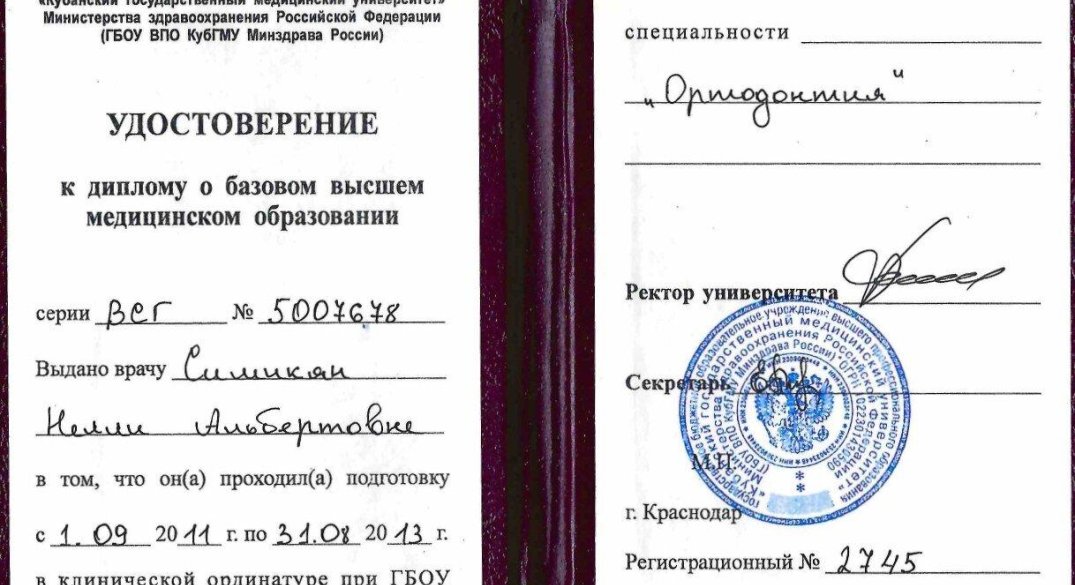 «Кубанский государственный медицинский университет»
Министерства здравоохранения Российской Федерации
(ГБОУ ВПО КубГМУ Минздрава России)
УДОСТОВЕРЕНИЕ
к диплому о базовом высшем
медицинском образовании
серии ВСГ № 5007678
Выдано врачу Симикян
Нелли Альбертовне
в том, что он(а) проходил(а) подготовку
с 1.09 2011 г. по 31.08 2013 г.
в клинической ординатуре при ГБОУ
специальности
„Ортодонтия"
Ректор университета
Секретарь
М.П.
г. Краснодар
Регистрационный № 2745